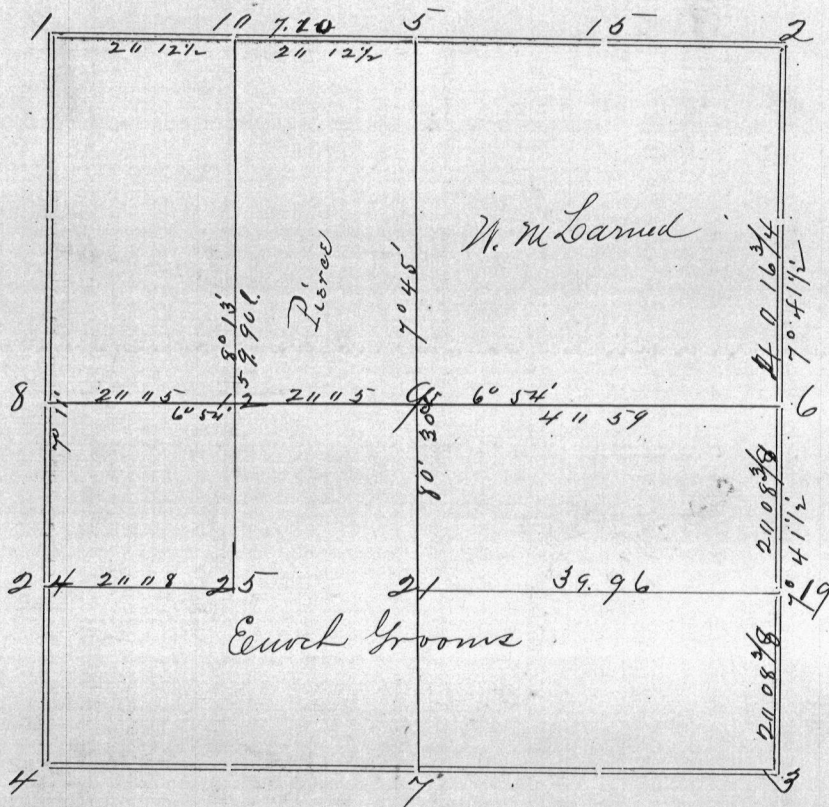 1 10 7.20 5 15 2
2 11 12½ 2 11 12½
W. M Larned
Pierce
8° 13'
59.90 l.
7° 45'
4 0 16¾
7° 41½'
8 2 11 05 12 2 11 05 9 6° 54' 6
6° 54' 4 11 59
7° 11'
80' 30"
2 11 08⅜
7° 41½'
24 2 11 08 25 21 39.96 19
Enoch Grooms
2 11 08⅜
4 7 3